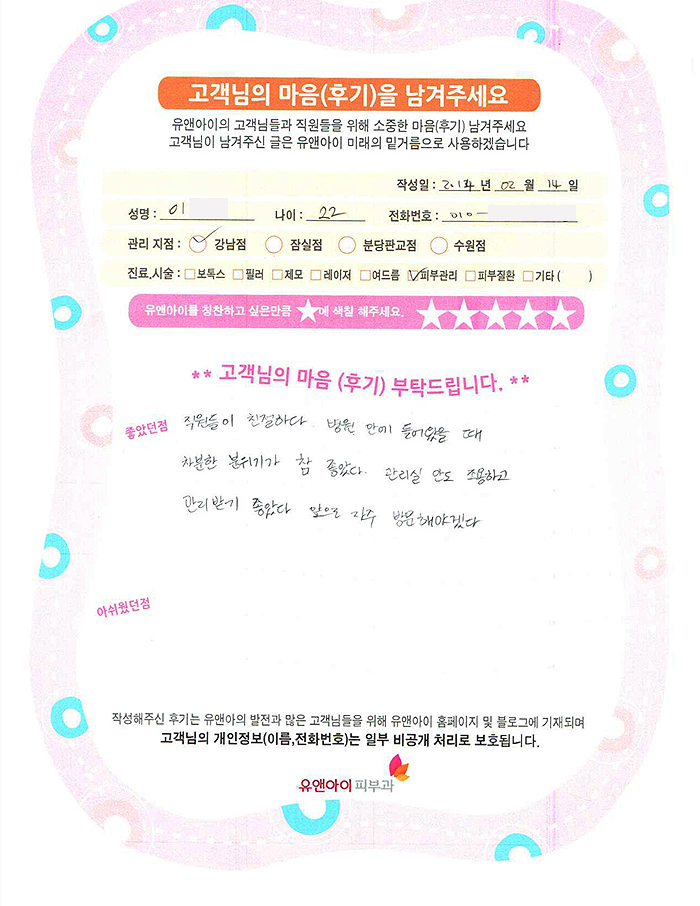 고객님의 마음(후기)을 남겨주세요
유앤아이의 고객님들과 직원들을 위해 소중한 마음(후기) 남겨주세요
고객님이 남겨주신 글은 유앤아이 미래의 밑거름으로 사용하겠습니다
작성일 : 2014 년 02 월 14 일
성명 : 이 나이 : 22 전화번호 : 010-
관리 지점 : 강남점 잠실점 분당판교점 수원점
진료,시술 : 보톡스 필러 제모 레이저 여드름 피부관리 피부질환 기타 ( )
유앤아이를 칭찬하고 싶은만큼 ★에 색칠 해주세요. ★★★★★
** 고객님의 마음 (후기) 부탁드립니다. **
좋았던점 직원들이 친절하다. 병원 안에 들어왔을 때
차분한 분위기가 참 좋았다. 관리실 안도 조용하고
관리받기 좋았다 앞으로 자주 방문해야겠다
아쉬웠던점
작성해주신 후기는 유앤아의 발전과 많은 고객님들을 위해 유앤아이 홈페이지 및 블로그에 기재되며
고객님의 개인정보(이름,전화번호)는 일부 비공개 처리로 보호됩니다.
유앤아이 피부과